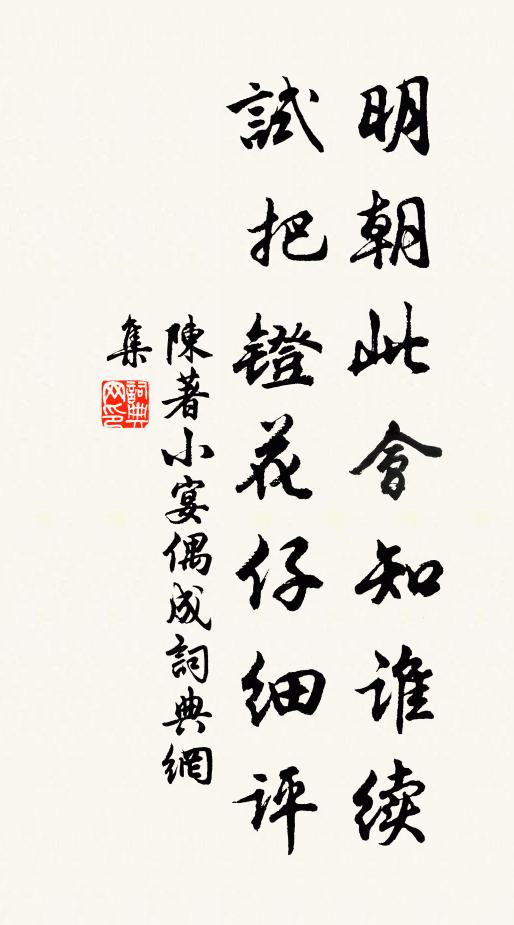 明朝此會知谁续
試把鐙花仔细评
陳著小宴偶成詞典網
集
詞典网印